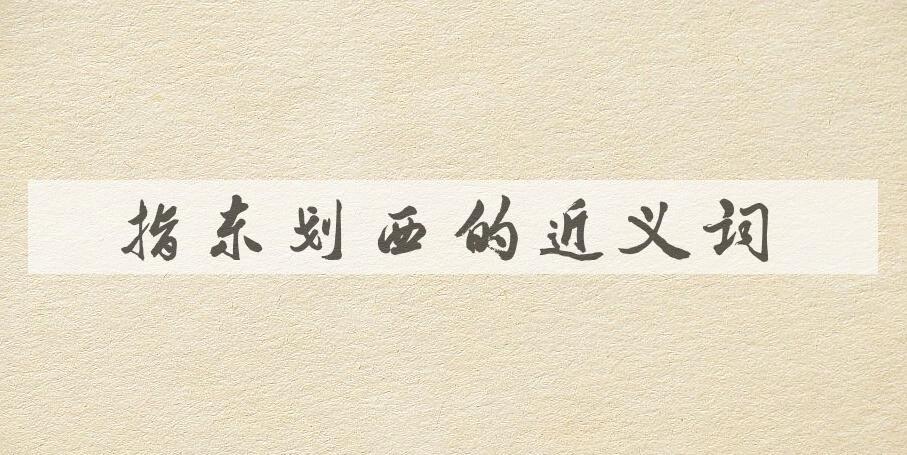 指东划西的近义词